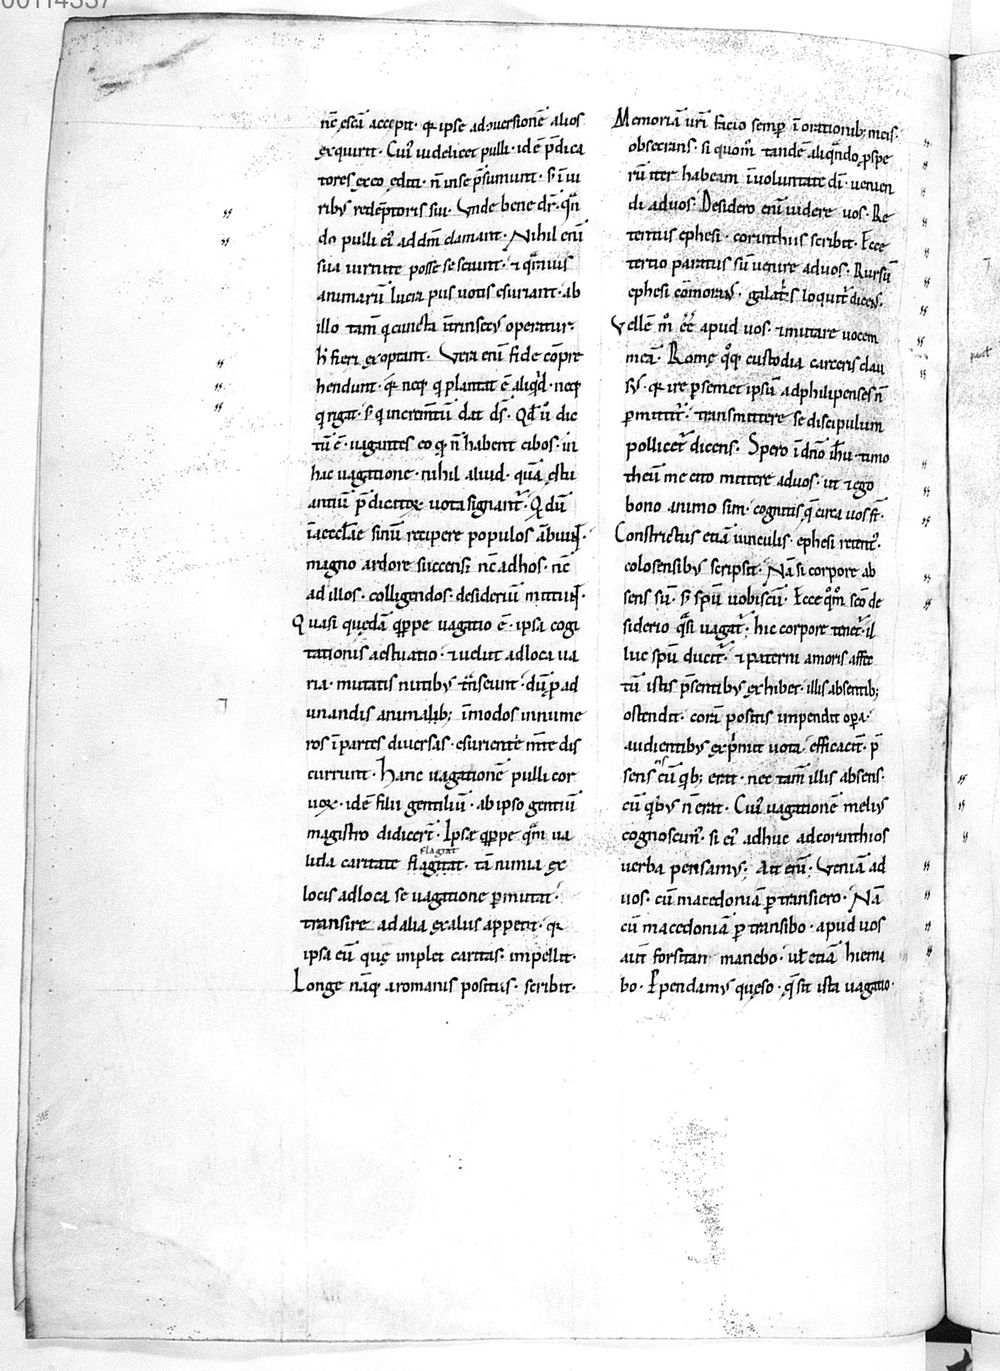 00114337
nc̄ escā accepit · qr ipse ad conuersionē alios
exquirit · Cui᷒ uidelicet pulli · id ē p̄dica
tores ex eo editi · n̄ in se p̄sumunt · s; ī ui
rib᷒ redēptoris sui · Vnde bene dr̄ · qn̄
do pulli ei᷒ ad dm̄ clamant · Nihil enī
sua uirtute posse se sciunt · ⁊ quāuis
animarū lucra piis uotis esuriant · ab
illo tam̄ q cuncta īt̄insec᷒ operatur ·
h̄ fieri exoptant · Vera enī fide cōpre
hendunt · qđ neq; q plantat ē aliqđ · neq;
q rigat · s; q incrementū dat ds̄ · Qđ u̓o dic
tū ē · uagantes eo qđ n̄ habent cibos · in
hac uagatione · nihil aliud · quā estu
antiū p̄dicatorū uota signant̄ · Q dū
ī aecclīae sinū recipere populos ābiunt ·
magno ardore succensi nc̄ ad hos · nc̄
ad illos · colligendos · desideriū mittunt ·
Quasi quędā qppe uagatio ē · ipsa cogi
tationis aestuatio · ⁊ uelut ad loca ua
ria · mutatis nutib᷒ t̄nseunt · dū p ad
unandis animalib; · ī modos innume
ros ī partes diuersas · esuriente m̄te dis
currunt · Hanc uagationē pulli cor
uorū · id ē filii gentiliū · ab ipso gentiū
magistro didicer̄t · Ipse qppe qm̄ ua
flagrat
lida caritate flagitat · tā nimia ex
locis ad loca se uagatione p̄mutat ·
transire ad alia ex aliis appetit · qr
ipsa eū quę implet caritas · impellit ·
Longe nāq; a romanis positus · scribit ·
Memoriā urī facio semp ī orationib; meis ·
obsecrans · si quom̄ tandē aliqn̄do p̄spe
rū iter habeam ī uoluntate dī · uenien
di ad uos · Desidero enī uidere uos · Re
tentus ephesi · corinthiis scribit · Ecce
tertio paratus sū uenire ad uos · Rursū
ephesi cōmorat᷒ · galatis loquit̄ dicens ·
Vellē m̊ ēē apud uos · ⁊ mutare uocem
meā · Romę qq; custodia carceris clau
s᷒ · qr ire p semet ipsū ad philipenses n̄
p̄mittit̄ · transmittere se discipulum
pollicet̄ dicens · Spero ī dn̄o ih̄u · timo
theū me cito mittere ad uos · ut ⁊ ego
bono animo sim · cognitis q̄ circa uos st̄ ·
Constrictus etiā uinculis · ephesi retent᷒ ·
colosensib᷒ scripsit · Nā si corpore ab
sens sū · s; sp̄u uobiscū · Ecce qm̄ sc̄o de
siderio qsi uagat̄ · hic corpore tenet̄ · il
luc sp̄u ducit̄ · ⁊ paterni amoris affec
tū istis p̄sentib᷒ exhibet · illis absentib;
ostendit · corā positis impendit opa ·
audientib᷒ exp̄mit uota · efficacit̄ · p̄
sens cū qib; erat · nec tam̄ illis absens ·
cū qib᷒ n̄ erat · Cui᷒ uagationē meli᷒
cognoscim᷒ · si ei᷒ adhuc ad corinthios
uerba pensam᷒ · Ait enī · Veniā ad
uos · cū macedoniā ptransiero · Nā
cū macedoniā ptransibo · apud uos
aut̄ forsitan manebo · ut̄ etiā hiema
bo · Ppendam᷒ quęso · q̄ sit ista uagatio ·